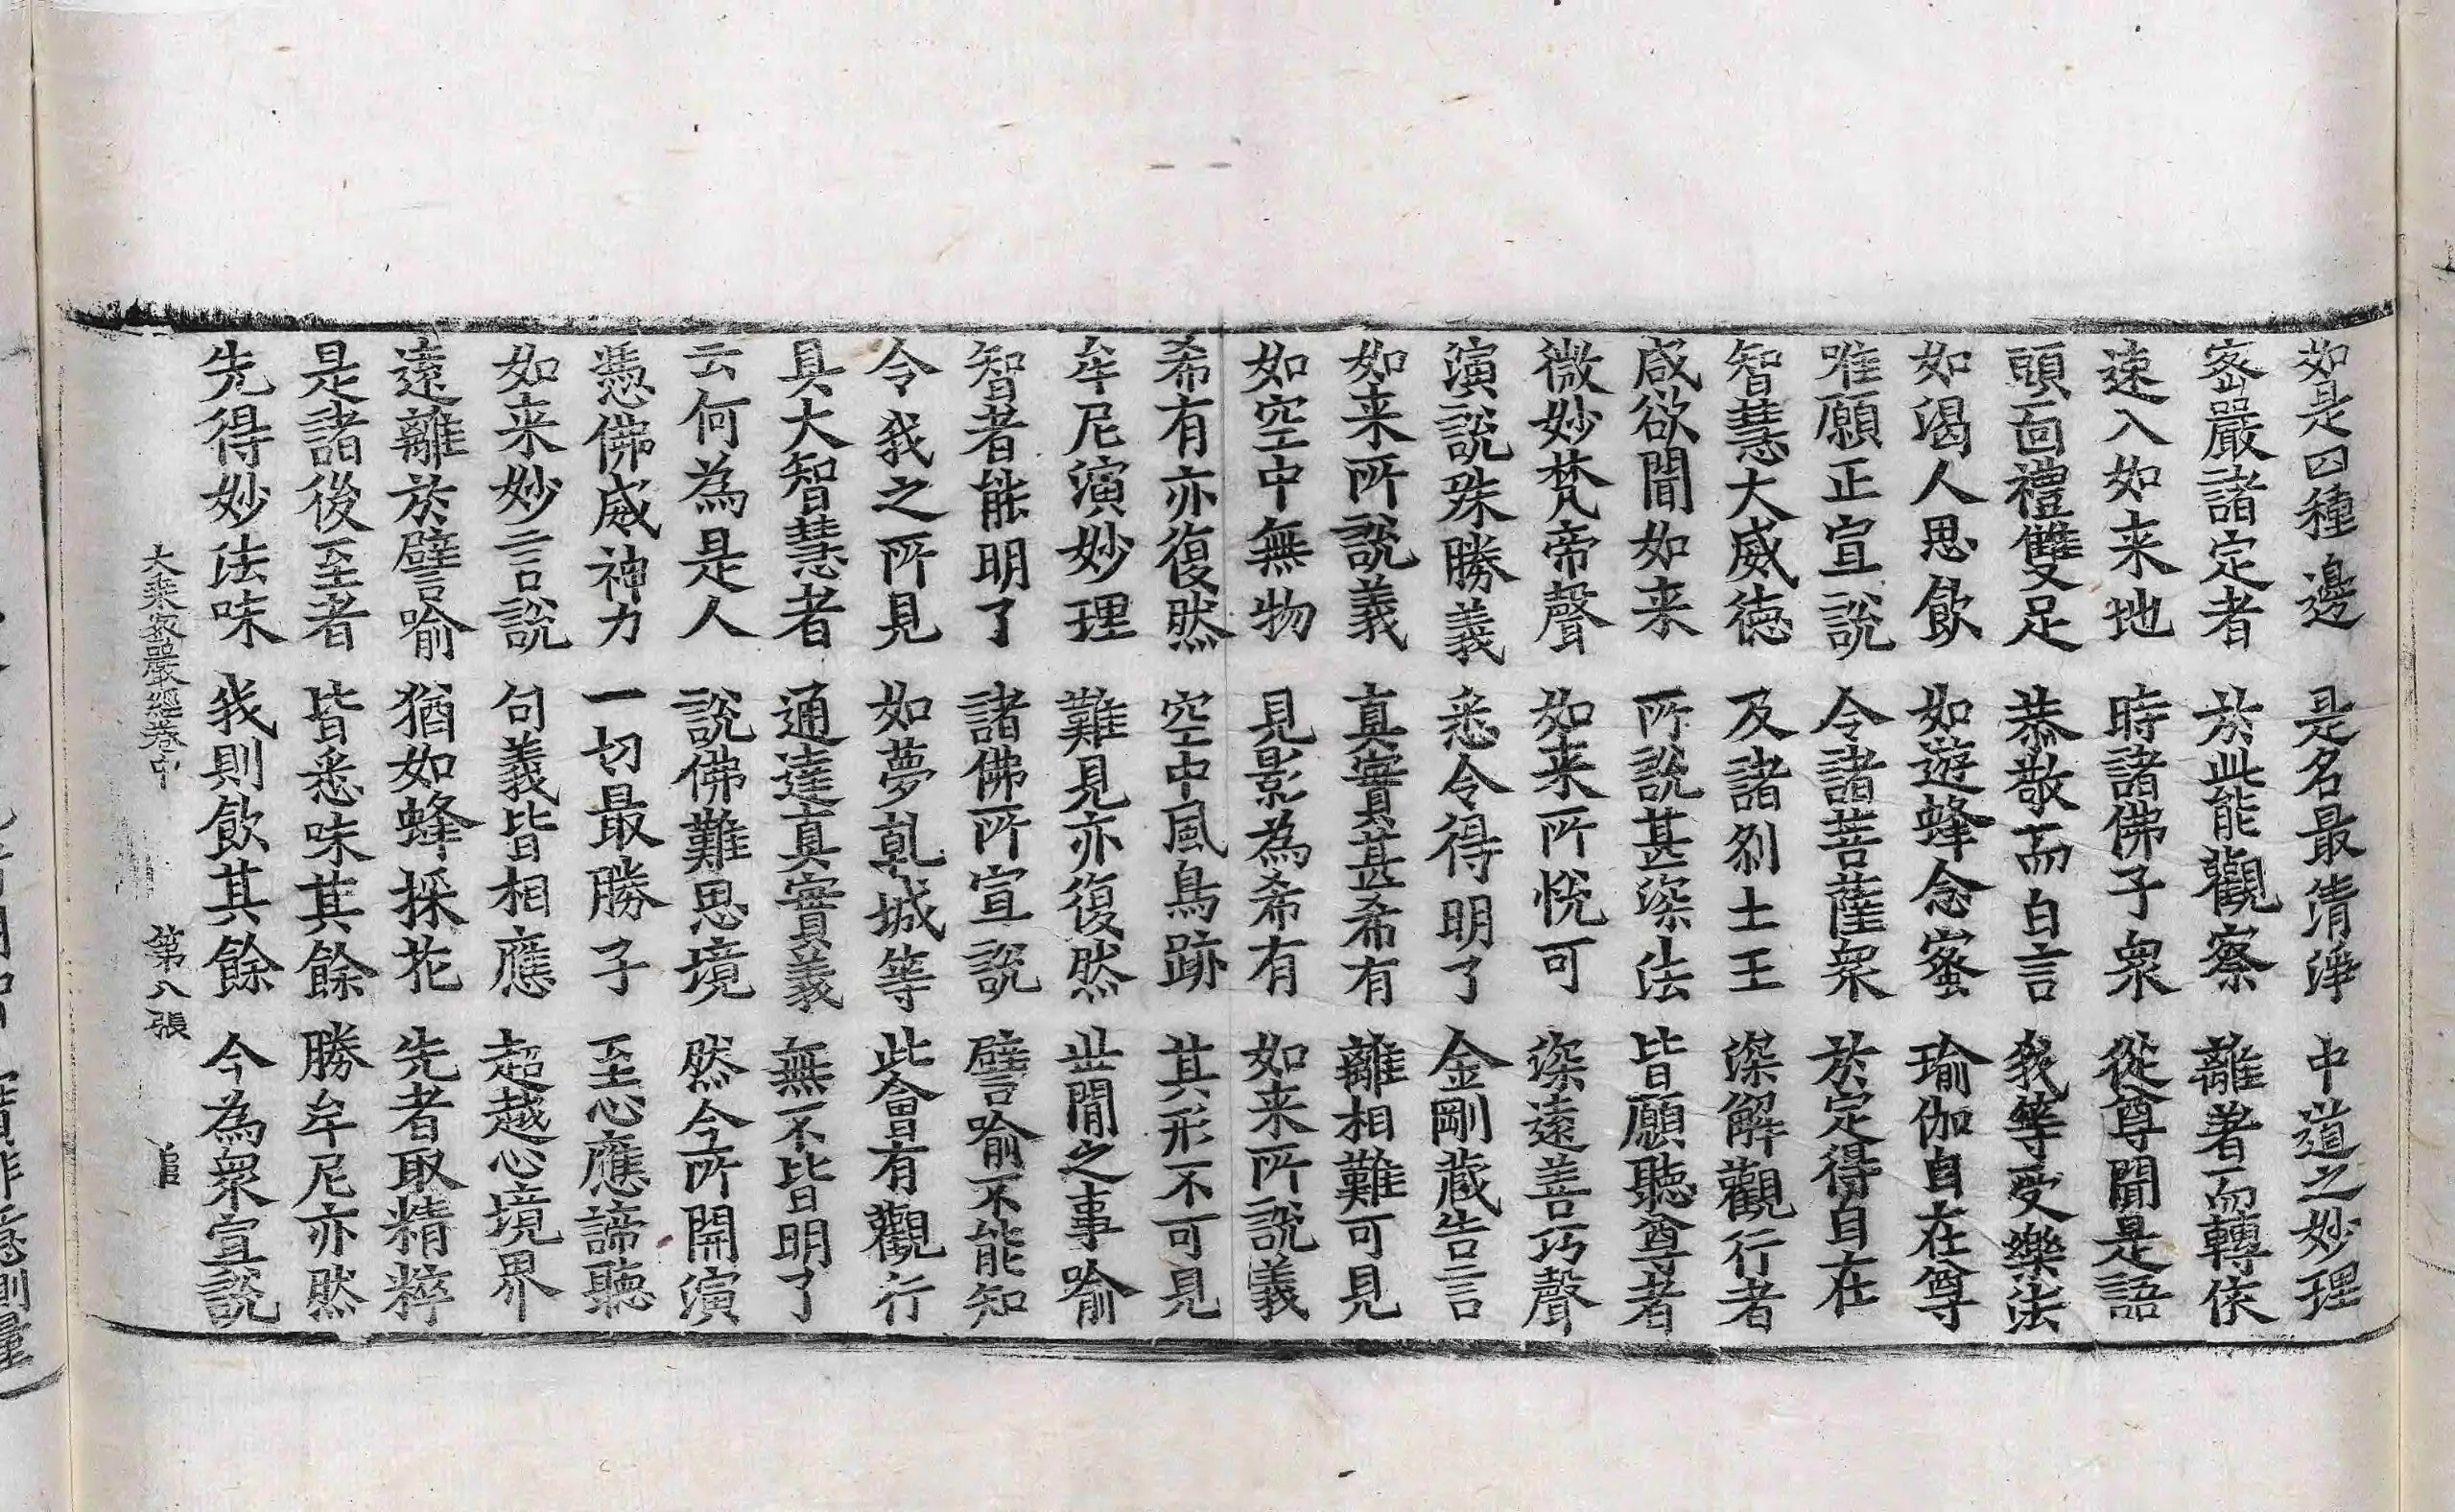 如是四種邊　是名最清淨　中道之妙理
宻嚴諸定者　於此能觀察　離著而轉依
速入如来地　時諸佛子衆　從尊聞是語
頭面禮雙足　恭敬而白言　我等受樂法
如渴人思飲　如遊蜂念蜜　瑜伽自在尊
唯願正宣說　令諸菩薩衆　於定得自在
智慧大威德　及諸刹土王　深解觀行者
咸欲聞如来　所說甚深法　皆願聽尊者
微妙梵帝聲　如来所悅可　深遠善巧聲
演說殊勝義　悉令得明了　金剛藏告言
如来所說義　真實甚希有　離相難可見
如空中無物　見影為希有　如来所說義
希有亦復然　空中風鳥跡　其形不可見
牟尼演妙理　難見亦復然　世閒之事喻
智者能明了　諸佛所宣說　譬喻不能知
今我之所見　如夢乾城等　此會有觀行
具大智慧者　通達真實義　無不皆明了
云何為是人　說佛難思境　然今所開演
憑佛威神力　一切最勝子　至心應諦聽
如来妙言說　句義皆相應　超越心境界
遠離於譬喻　猶如蜂採花　先者取精粹
是諸後至者　皆悉味其餘　勝牟尼亦然
先得妙法味　我則飲其餘　今為衆宣說
大乘宻嚴經卷中　第八張